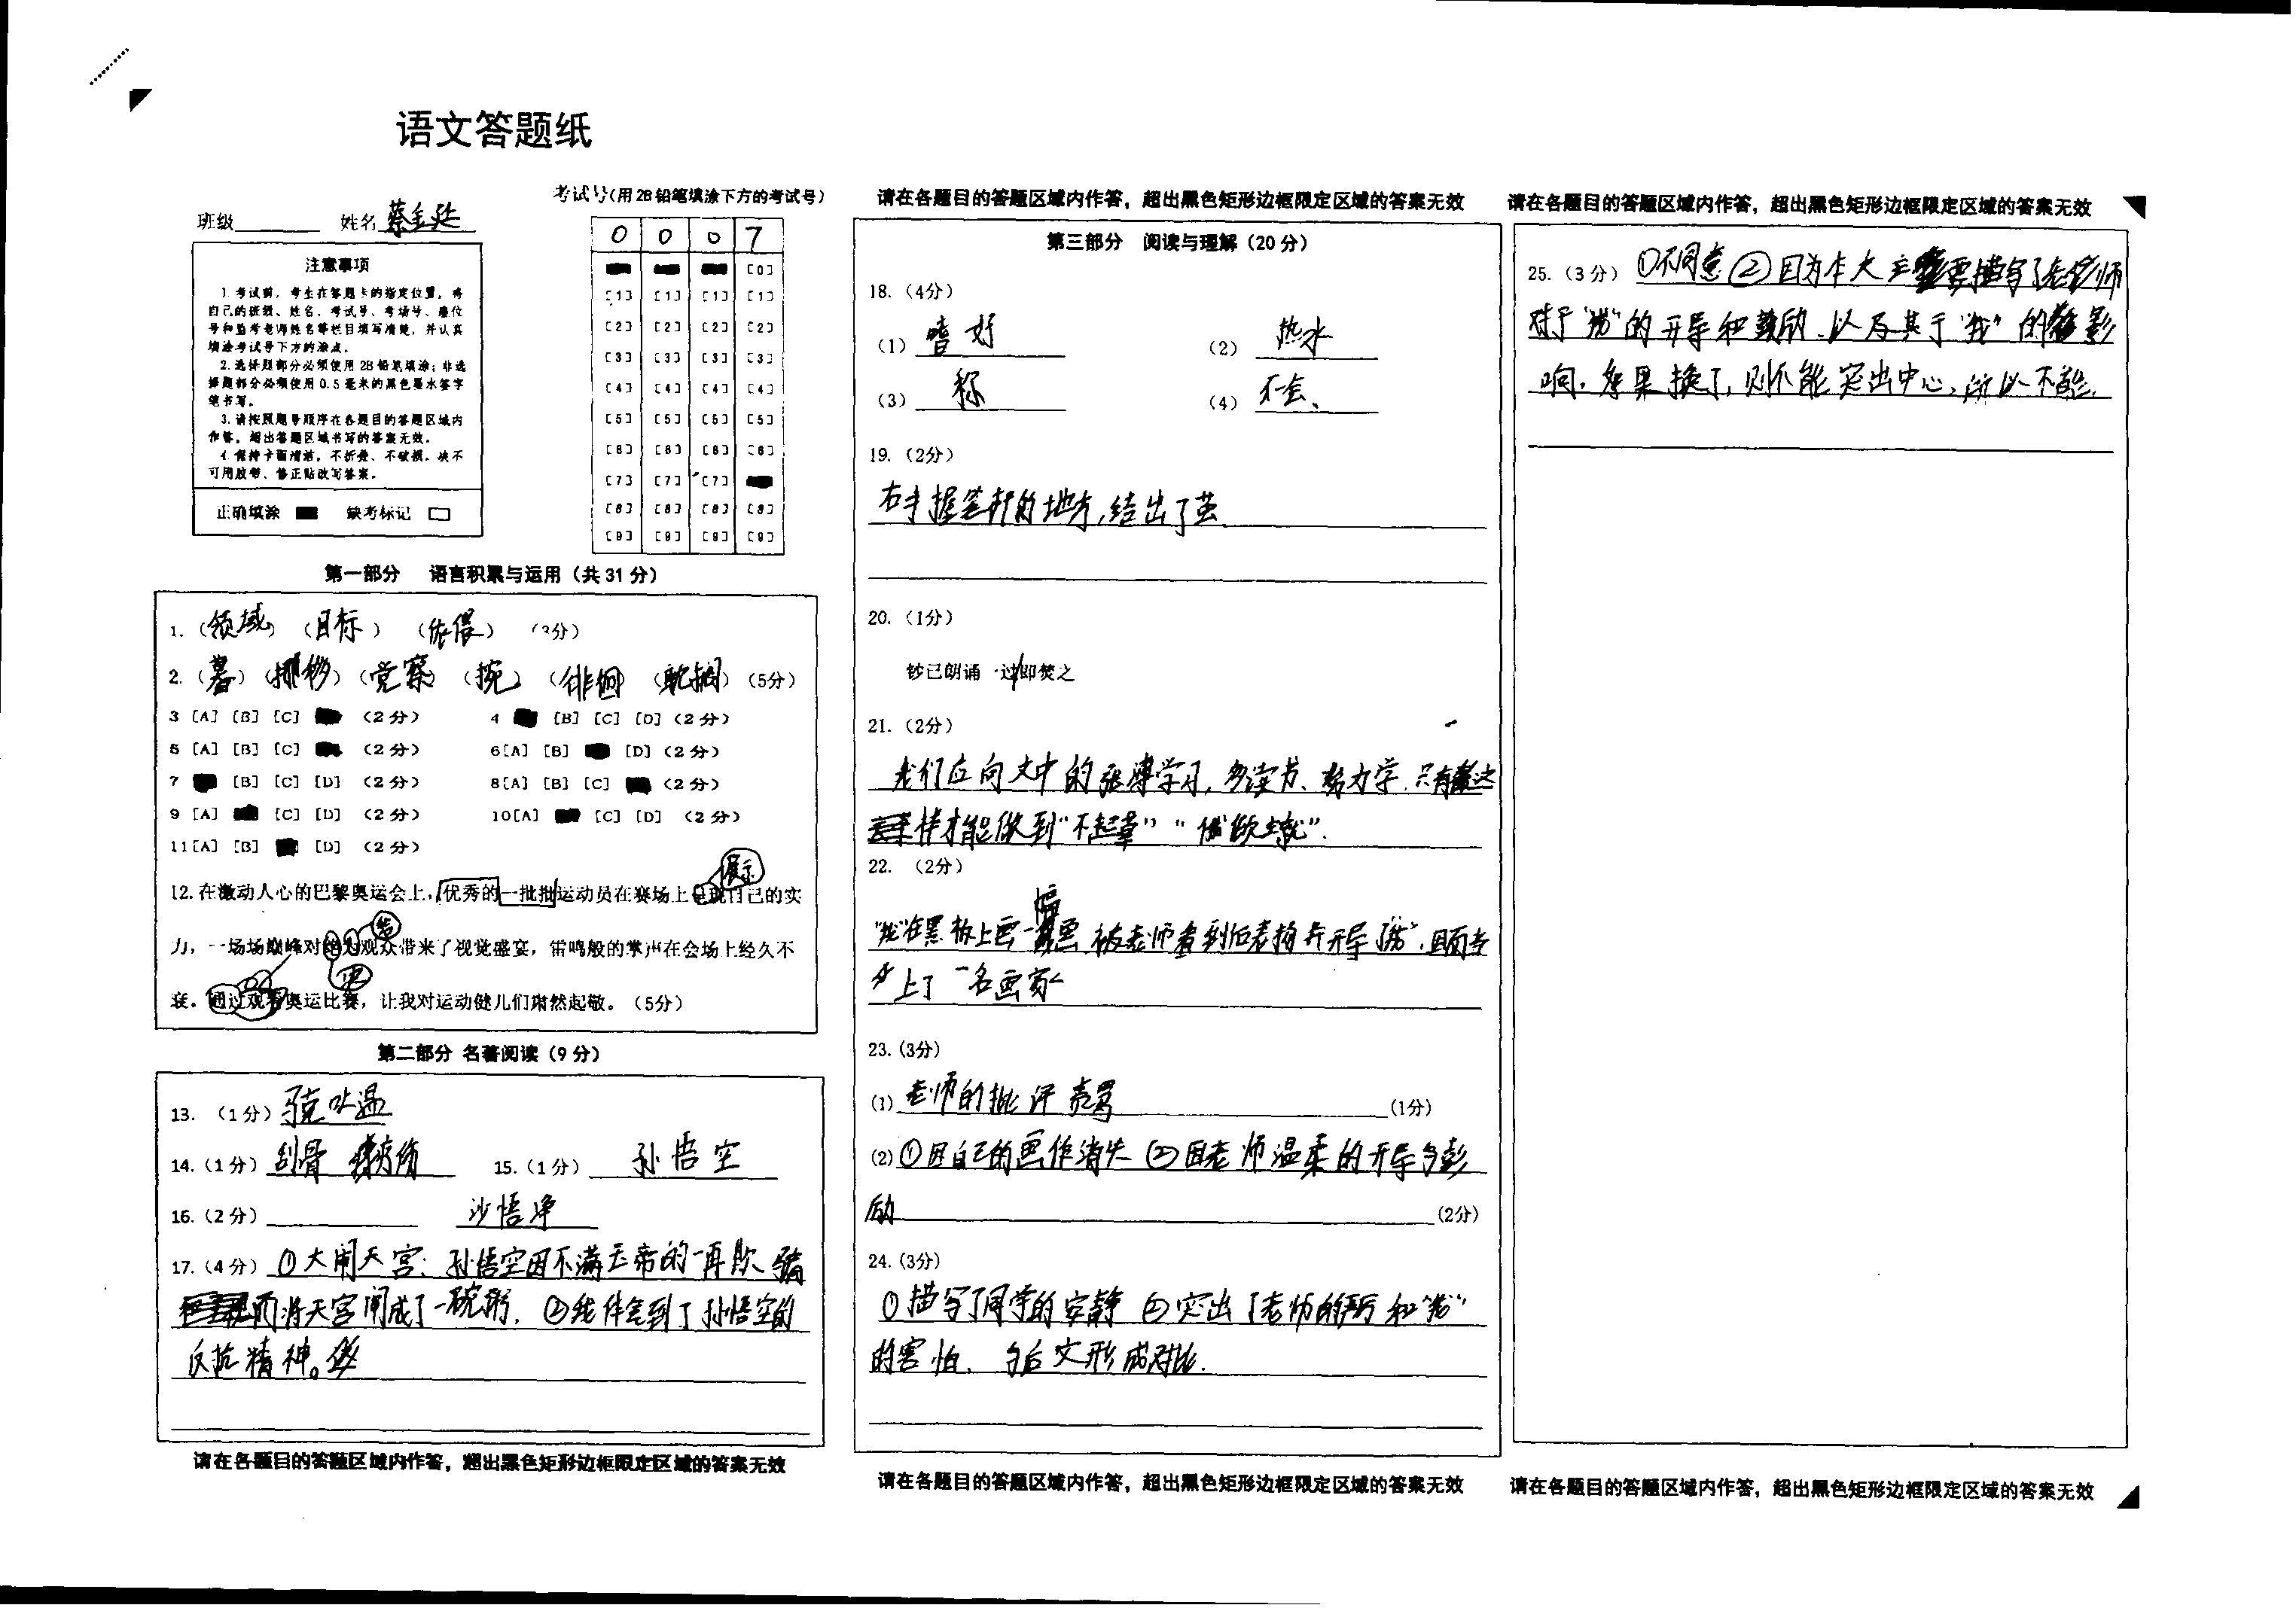 语文答题纸
考试号(用2B铅笔填涂下方的考试号)
班级 姓名 蔡
0 0 0 7
注意事项
1.考试前,考生在答题卡的指定位置,将
自己的班级、姓名、考试号、考场号、座位
号和监考老师姓名等栏目填写清楚,并认真
填涂考试号下方的涂点。
2.选择题部分必须使用2B铅笔填涂;非选
择题部分必须使用0.5毫米的黑色墨水签字
笔书写。
3.请按照题号顺序在各题目的答题区域内
作答,超出答题区域书写的答案无效。
4.保持卡面清洁,不折叠、不破损。决不
可用胶带、修正贴改写答案。
正确填涂 缺考标记
[0]
[1] [1] [1] [1]
[2] [2] [2] [2]
[3] [3] [3] [3]
[4] [4] [4] [4]
[5] [5] [5] [5]
[6] [6] [6] [6]
[7] [7] [7]
[8] [8] [8] [8]
[9] [9] [9] [9]
第一部分 语言积累与运用(共31分)
1.(领域)(目标)(依偎)(3分)
2.(暮)(挪移)(觉察)(掜)(徘徊)(耽搁)(5分)
3 [A] [B] [C] (2分) 4 [B] [C] [D] (2分)
5 [A] [B] [C] (2分) 6[A] [B] [D] (2分)
7 [B] [C] [D] (2分) 8[A] [B] [C] (2分)
9 [A] [C] [D] (2分) 10[A] [C] [D] (2分)
11[A] [B] [D] (2分)
展示
12.在激动人心的巴黎奥运会上,优秀的一批批运动员在赛场上呈现自己的实
力,一场场巅峰对绝为观众带来了视觉盛宴,雷鸣般的掌声在会场上经久不
衰。通过观看奥运比赛,让我对运动健儿们肃然起敬。(5分)
第二部分 名著阅读(9分)
13.(1分)
14.(1分)刮骨疗伤 15.(1分)孙悟空
16.(2分) 沙悟净
17.(4分)①大闹天宫:孙悟空因不满玉帝的一再欺骗
而将天宫闹成了一碗粥.②我体会到了孙悟空的
反抗精神。
请在各题目的答题区域内作答,超出黑色矩形边框限定区域的答案无效
请在各题目的答题区域内作答,超出黑色矩形边框限定区域的答案无效
第三部分 阅读与理解(20分)
18.(4分)
(1)嗜好 (2)热水
(3)称 (4)不会、
19.(2分)
右手握笔杆的地方,结出了茧.
20.(1分)
钞已朗诵一过即焚之
21.(2分)
我们应向文中的张溥学习,多读书、努力学.只有这
样才能做到"不起草""俄顷立就".
22.(2分)
"我"在黑板上画一幅画被老师看到后表扬并开导"我".且
上了一名画家
23.(3分)
(1)老师的批评责骂 (1分)
(2)①因自己的画作消失②因老师温柔的开导与彭
励 (2分)
24.(3分)
①描写了同学的安静②突出了老师的和"我"
的害怕.与后文形成对比.
请在各题目的答题区域内作答,超出黑色矩形边框限定区域的答案无效
请在各题目的答题区域内作答,超出黑色矩形边框限定区域的答案无效
25.(3分)①不同意②因为本文主要描写了老师
对于"我"的开导和鼓励.以及其于"我"的影
响.如果换了,则不能突出中心,所以不能.
请在各题目的答题区域内作答,超出黑色矩形边框限定区域的答案无效